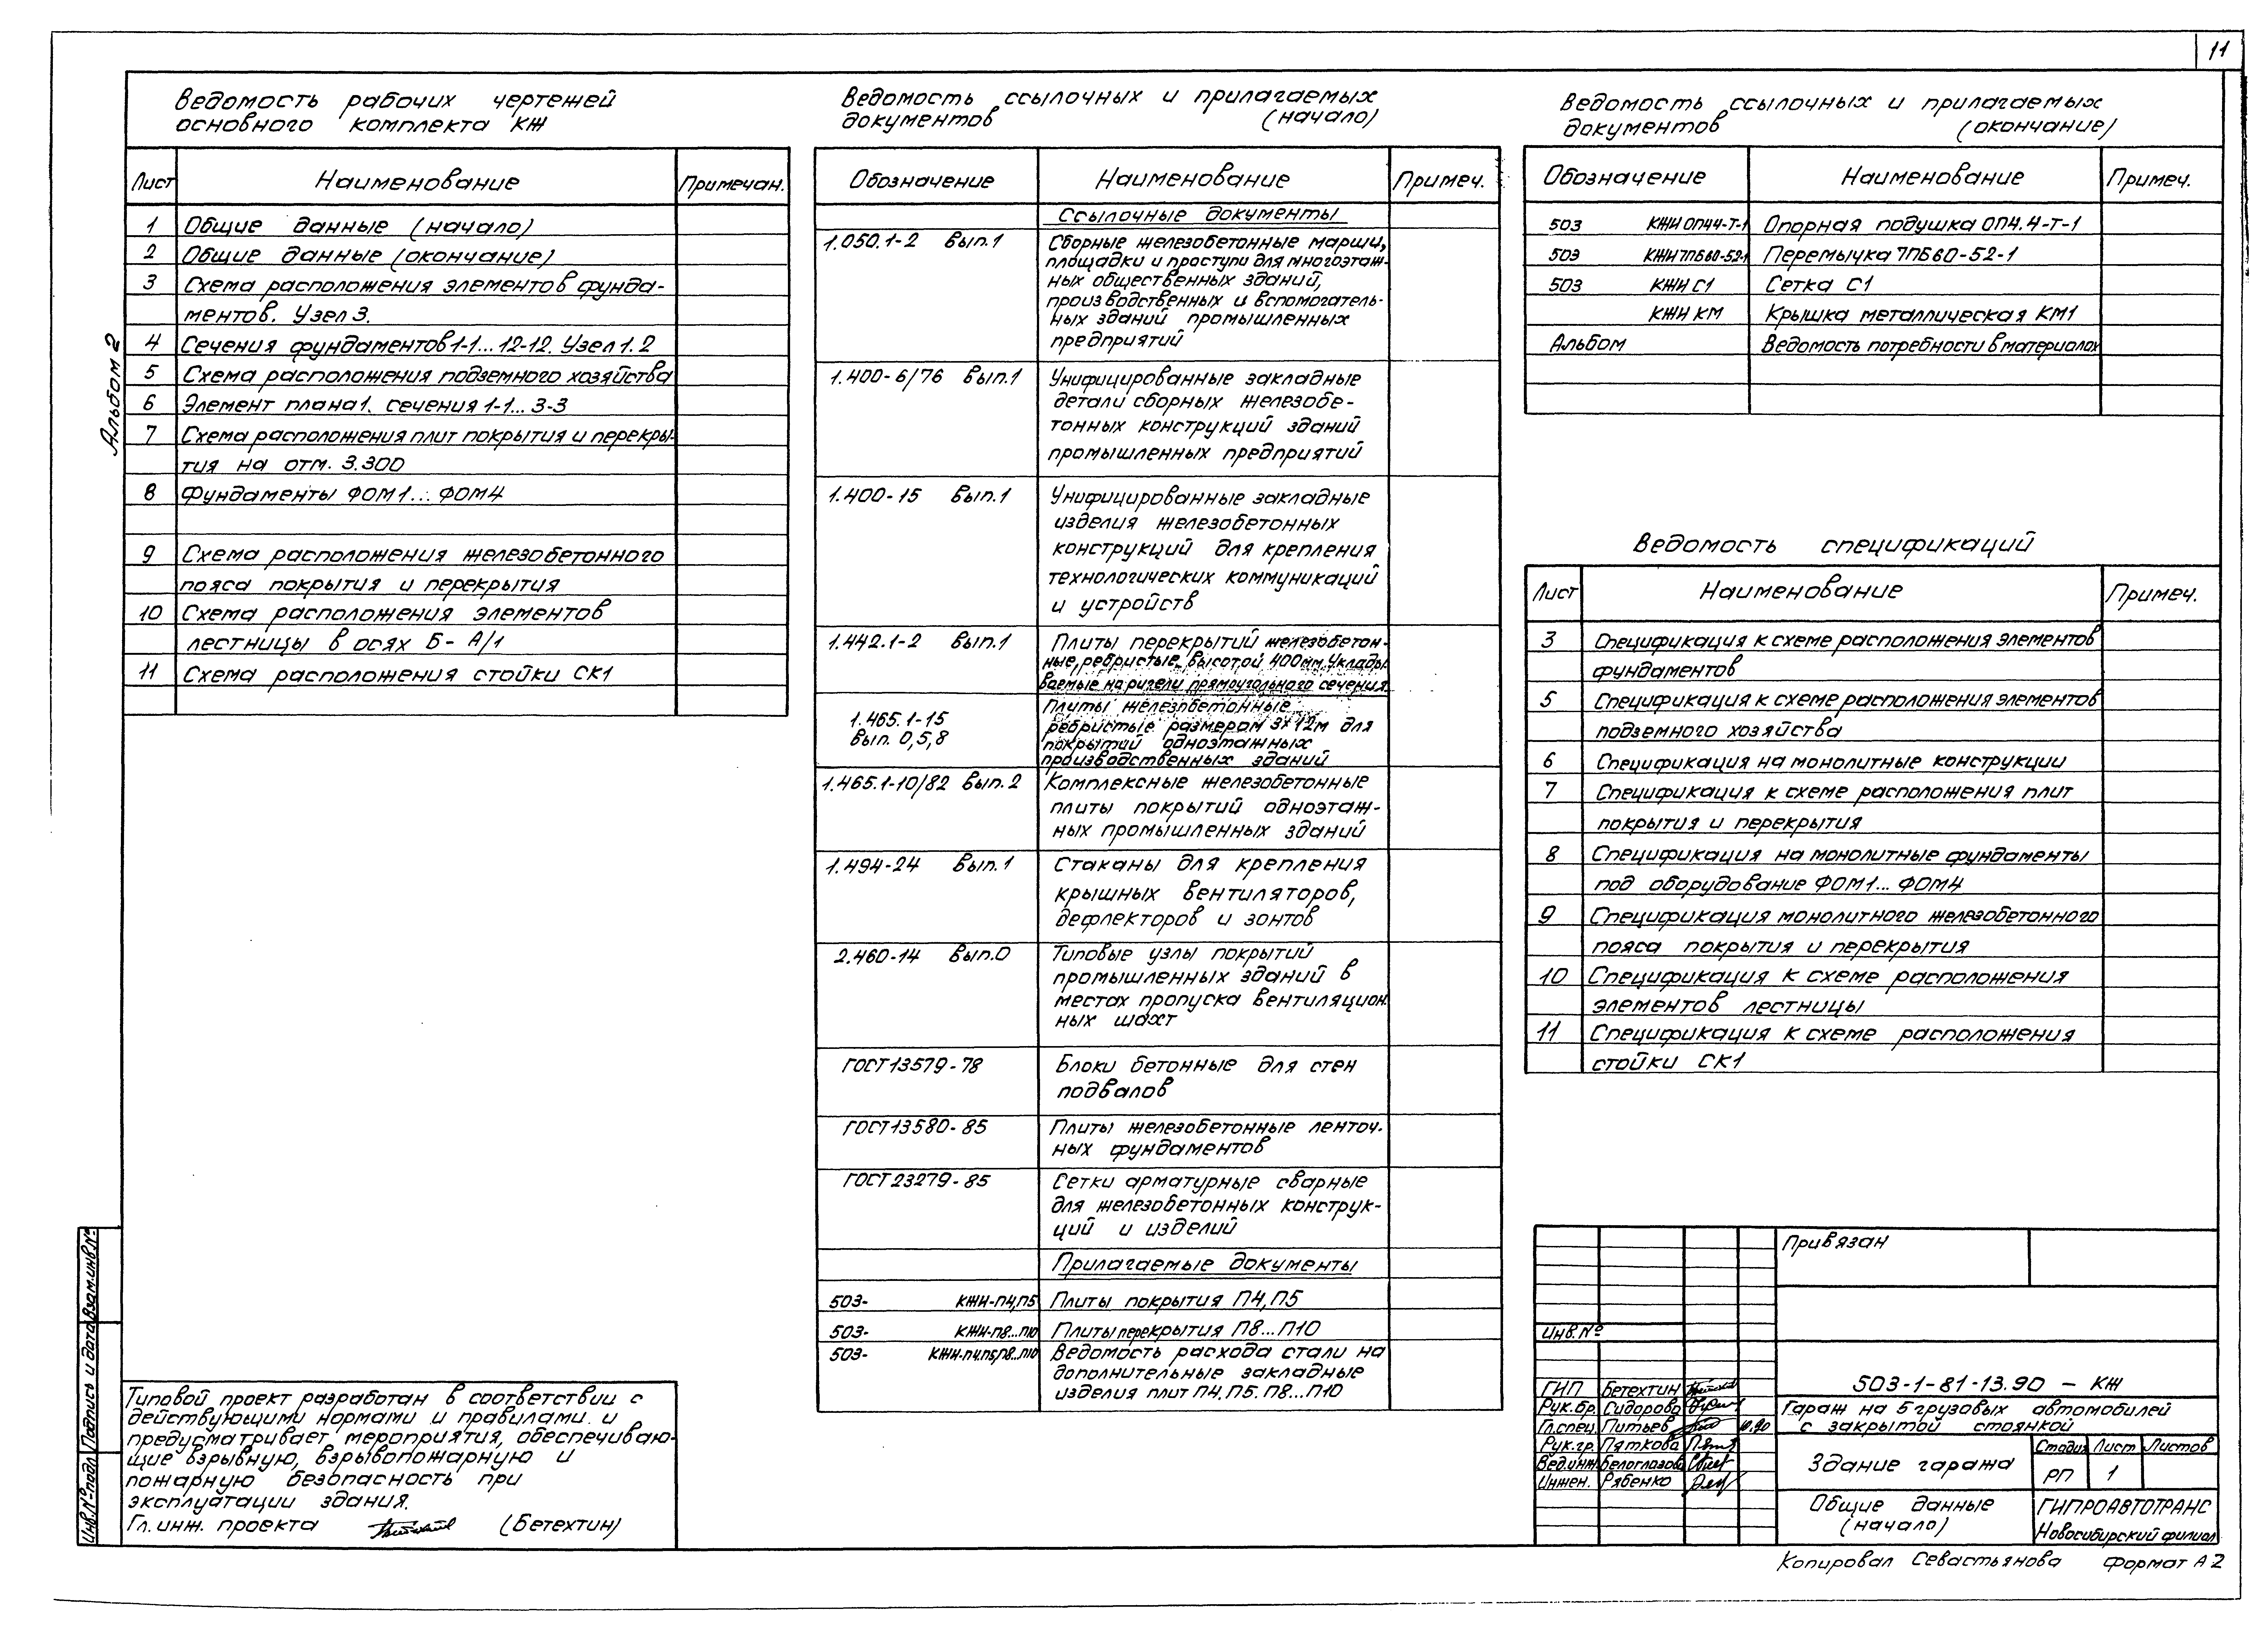 11
Альбом 2
Ведомость рабочих чертежей
основного комплекта КЖ
Лист Наименование Примечан.
1 Общие данные (начало)
2 Общие данные (окончание)
3 Схема расположения элементов фунда-
ментов. Узел 3.
4 Сечения фундаментов 1-1... 12-12. Узел 1. 2
5 Схема расположения подземного хозяйства
6 Элемент плана 1. сечения 1-1... 3-3
7 Схема расположения плит покрытия и перекры-
тия на отм. 3.300
8 Фундаменты ФОМ1... ФОМ4
9 Схема расположения железобетонного
пояса покрытия и перекрытия
10 Схема расположения элементов
лестницы в осях Б- А/1
11 Схема расположения стойки СК1
Типовой проект разработан в соответствии с
действующими нормами и правилами и
предусматривает мероприятия, обеспечиваю-
щие взрывную, взрывопожарную и
пожарную безопасность при
эксплуатации здания.
Гл. инж. проекта (Бетехтин)
Инв.№подл Подпись и дата Взам.инв.№
Ведомость ссылочных и прилагаемых
документов (начало)
Обозначение Наименование Примеч.
Ссылочные документы
1.050.1-2 Вып.1 Сборные железобетонные марши,
площадки и проступи для многоэтаж-
ных общественных зданий,
производственных и вспомогатель-
ных зданий промышленных
предприятий
1.400-6/76 Вып.1 Унифицированные закладные
детали сборных железобе-
тонных конструкций зданий
промышленных предприятий
1.400-15 Вып.1 Унифицированные закладные
изделия железобетонных
конструкций для крепления
технологических коммуникаций
и устройств
1.442.1-2 Вып.1 Плиты перекрытий железобетон-
ные, ребристые высотой 400мм, Уклады
ваемые на ригели прямоугольного сечения
1.465.1-15
Вып. 0,5,8
Плиты железобетонные
ребристые размером 3х12м для
покрытий одноэтажных
производственных зданий
1.465.1-10/82 Вып.2 Комплексные железобетонные
плиты покрытий одноэтаж-
ных промышленных зданий
1.494-24 Вып.1 Стаканы для крепления
крышных вентиляторов,
дефлекторов и зонтов
2.460-14 Вып.0 Типовые узлы покрытий
промышленных зданий в
местах пропуска вентиляцион.
ных шахт
ГОСТ 13579-78 Блоки бетонные для стен
подвалов
ГОСТ 13580-85 Плиты железобетонные ленточ-
ных фундаментов
ГОСТ 23279-85 Сетки арматурные сварные
для железобетонных конструк-
ций и изделий
Прилагаемые документы
503- КЖИ-П4,П5 Плиты покрытия П4, П5
503- КЖИ-П8...П10 Плиты перекрытия П8...П10
503- КЖИ-П4,П5,П8...П10 Ведомость расхода стали на
дополнительные закладные
изделия плит П4, П5. П8...П10
Ведомость ссылочных и прилагаемых
документов (окончание)
Обозначение Наименование Примеч.
503 КЖИ ОП44-Т-1 Опорная подушка ОП4.4-Т-1
503 КЖИ 7ПБ60-52-1 Перемычка 7ПБ60-52-1
503 КЖИ С1 Сетка С1
КЖИ КМ Крышка металлическая КМ1
Альбом Ведомость потребности в материалах
Ведомость спецификаций
Лист Наименование Примеч.
3 Спецификация к схеме расположения элементов
фундаментов
5 Спецификация к схеме расположения элементов
подземного хозяйства
6 Спецификация на монолитные конструкции
7 Спецификация к схеме расположения плит
покрытия и перекрытия
8 Спецификация на монолитные фундаменты
под оборудование ФОМ1... ФОМ4
9 Спецификация монолитного железобетонного
пояса покрытия и перекрытия
10 Спецификация к схеме расположения
элементов лестницы
11 Спецификация к схеме расположения
стойки СК1
Привязан
Инв.№
503-1-81-13.90 - КЖ
ГИП Бетехтин
Рук.бр. Сидорова
Гл.спец. Питьев 10.90
Рук.гр. Пяткова
Вед.инж. Белоглазова
Инжен. Рябенко
Гараж на 5 грузовых автомобилей
с закрытой стоянкой
Здание гаража
Стадия Лист Листов
РП 1
Общие данные
(начало)
ГИПРОАВТОТРАНС
Новосибирский филиал
Копировал Севастьянова Формат А2